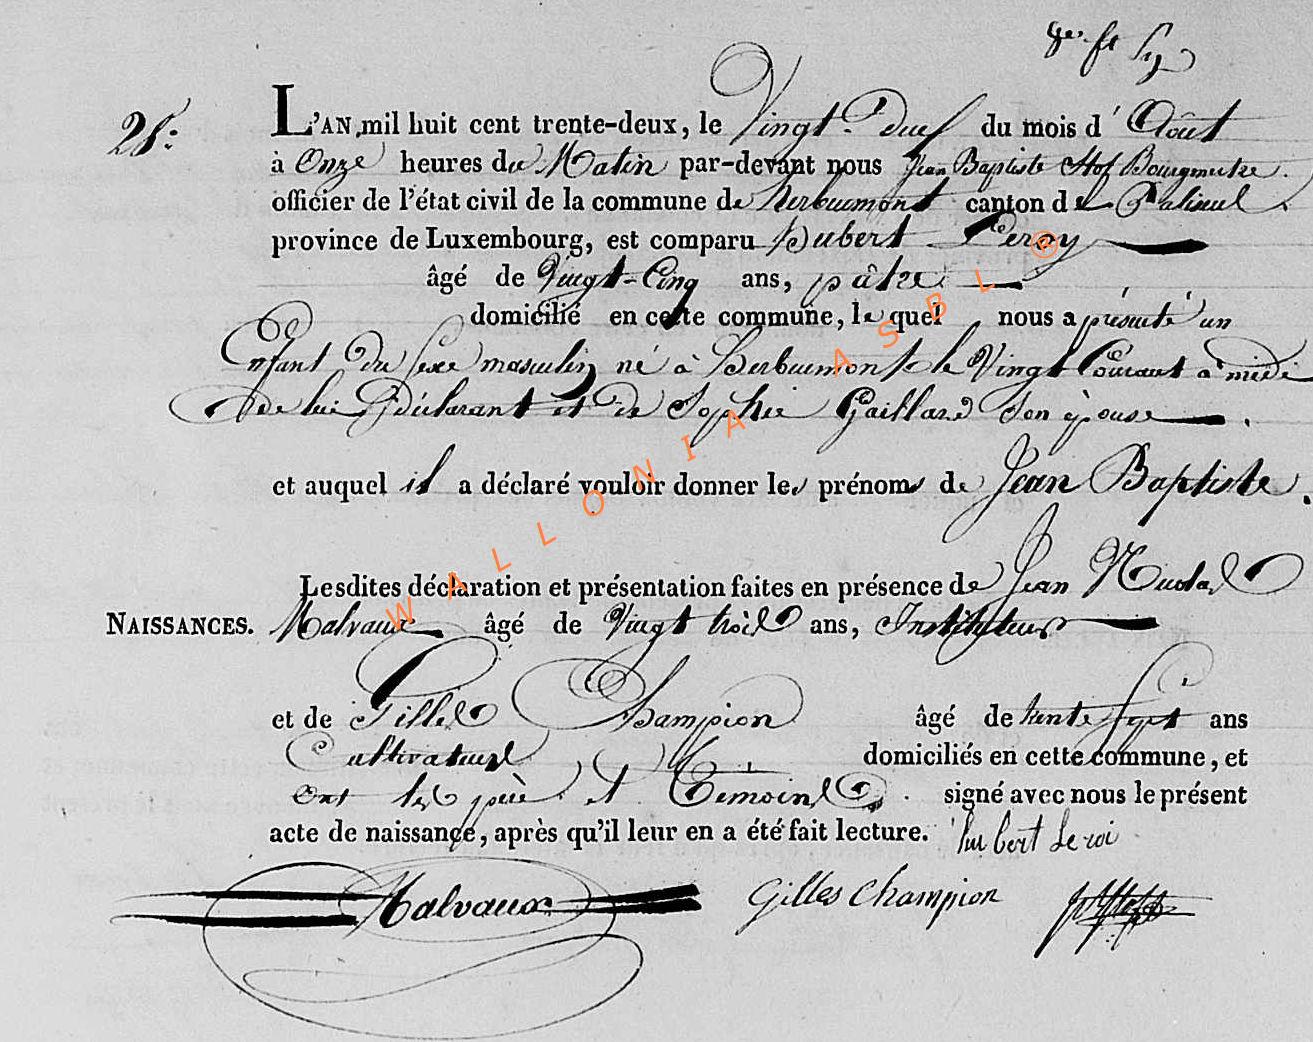 28:
L'AN mil huit cent trente-deux, le Vingt-deux du mois d'Août
à Onze heures du Matin par-devant nous Jean Baptiste Hof Bourgmestre.
officier de l'état civil de la commune de Herbeumont canton de Paliseul
province de Luxembourg, est comparu Hubert Leroy
âgé de Vingt-Cinq ans, pâtre
domicilié en cette commune, lequel nous a présenté un
Enfant du sexe masculin né à Herbeumont le Vingt Courant à midi
de lui déclarant et de Sophie Gaillard son épouse.
et auquel il a déclaré vouloir donner les prénoms de Jean Baptiste.
Lesdites déclaration et présentation faites en présence de Jean Nicolas
NAISSANCES. Malvaux âgé de Vingt trois ans, Instituteur
et de Gilles Champion âgé de trente sept ans
Cultivateurs domiciliés en cette commune, et
ont les père et Témoins signé avec nous le présent
acte de naissance, après qu'il leur en a été fait lecture. hubert Leroi
Malvaux Gilles Champion
WALLONIA ASBL ®